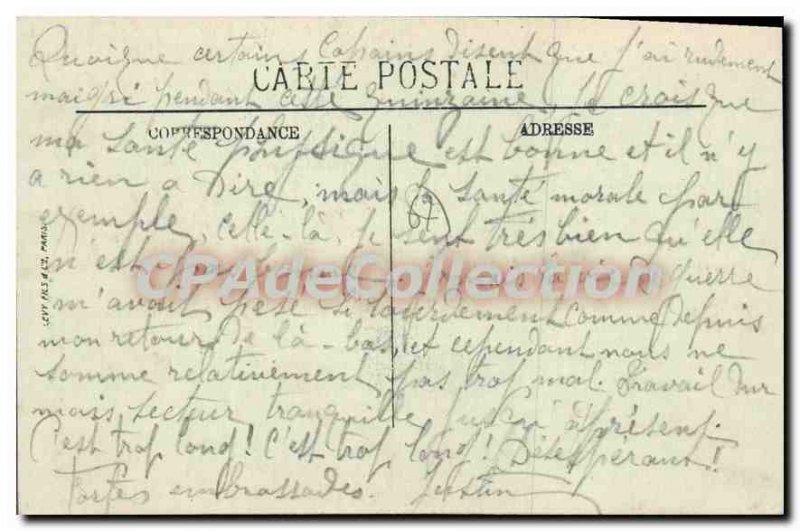 Quoique certains Copains disent que j'ai rudement
CARTE POSTALE
maigri pendant cette quinzaine, je crois que
CORRESPONDANCE ADRESSE
ma santé physique est bonne et il n'y
a rien a Dire, mais la santé morale par
exemple, celle-là, je sent très bien qu'elle
67
n'est pas jamais la vie de guerre
CPAdeCollection.com
m'avait pesé si lourdement comme Depuis
mon retour De là-bas, et cependant nous ne
somme relativement pas trop mal. Travail Dur
mais secteur tranquille jusqu'à présent.
C'est trop long! C'est trop long! Désespérant!!
Fortes embrassades. Justin
LEVY FILS & Cie, PARIS